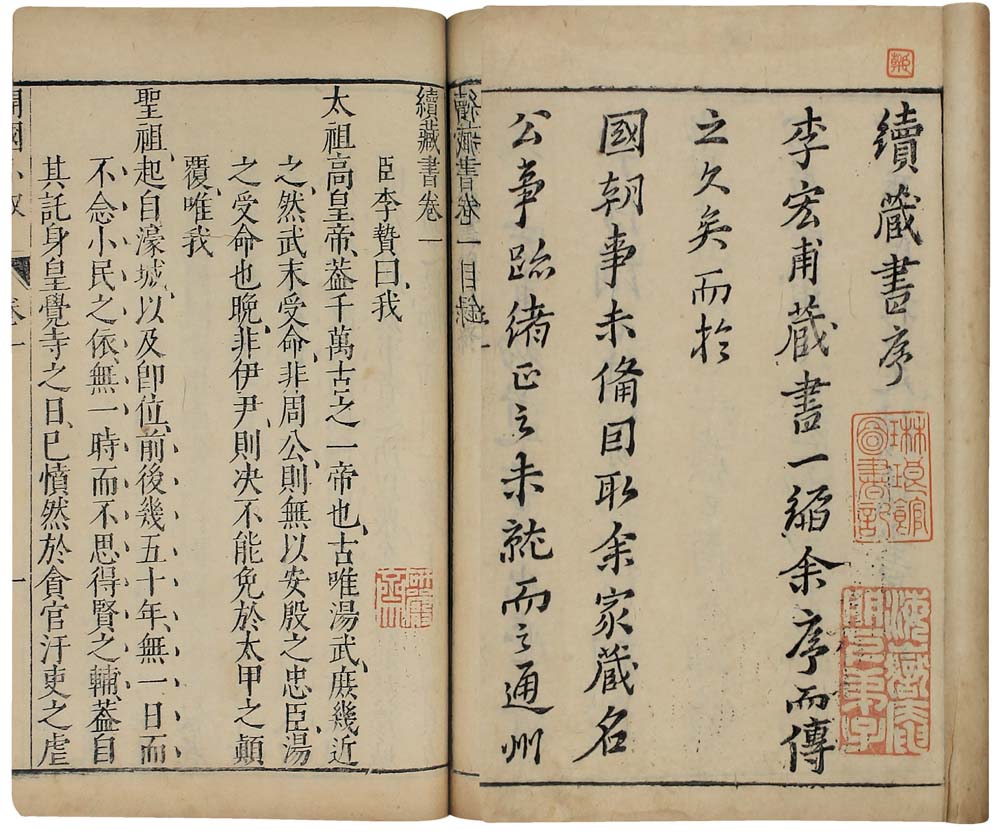 續藏書序
李宏甫藏書一編余序而傳
之久矣而於
國朝事未備因取余家藏名
公事跡緒正之未就而之通州
續藏書卷一目錄
續藏書卷一
臣李贄曰我
太祖高皇帝、葢千萬古之一帝也、古唯湯武、庶幾近
之、然武末受命、非周公、則無以安殷之忠臣、湯
之受命也晚、非伊尹、則決不能免於太甲之顛
覆、唯我
聖祖、起自濠城、以及卽位、前後幾五十年、無一日而
不念小民之依、無一時而不思得賢之輔、葢自
其託身皇覺寺之日、已憤然於貪官汙吏之虐
開國小敘
卷一
一